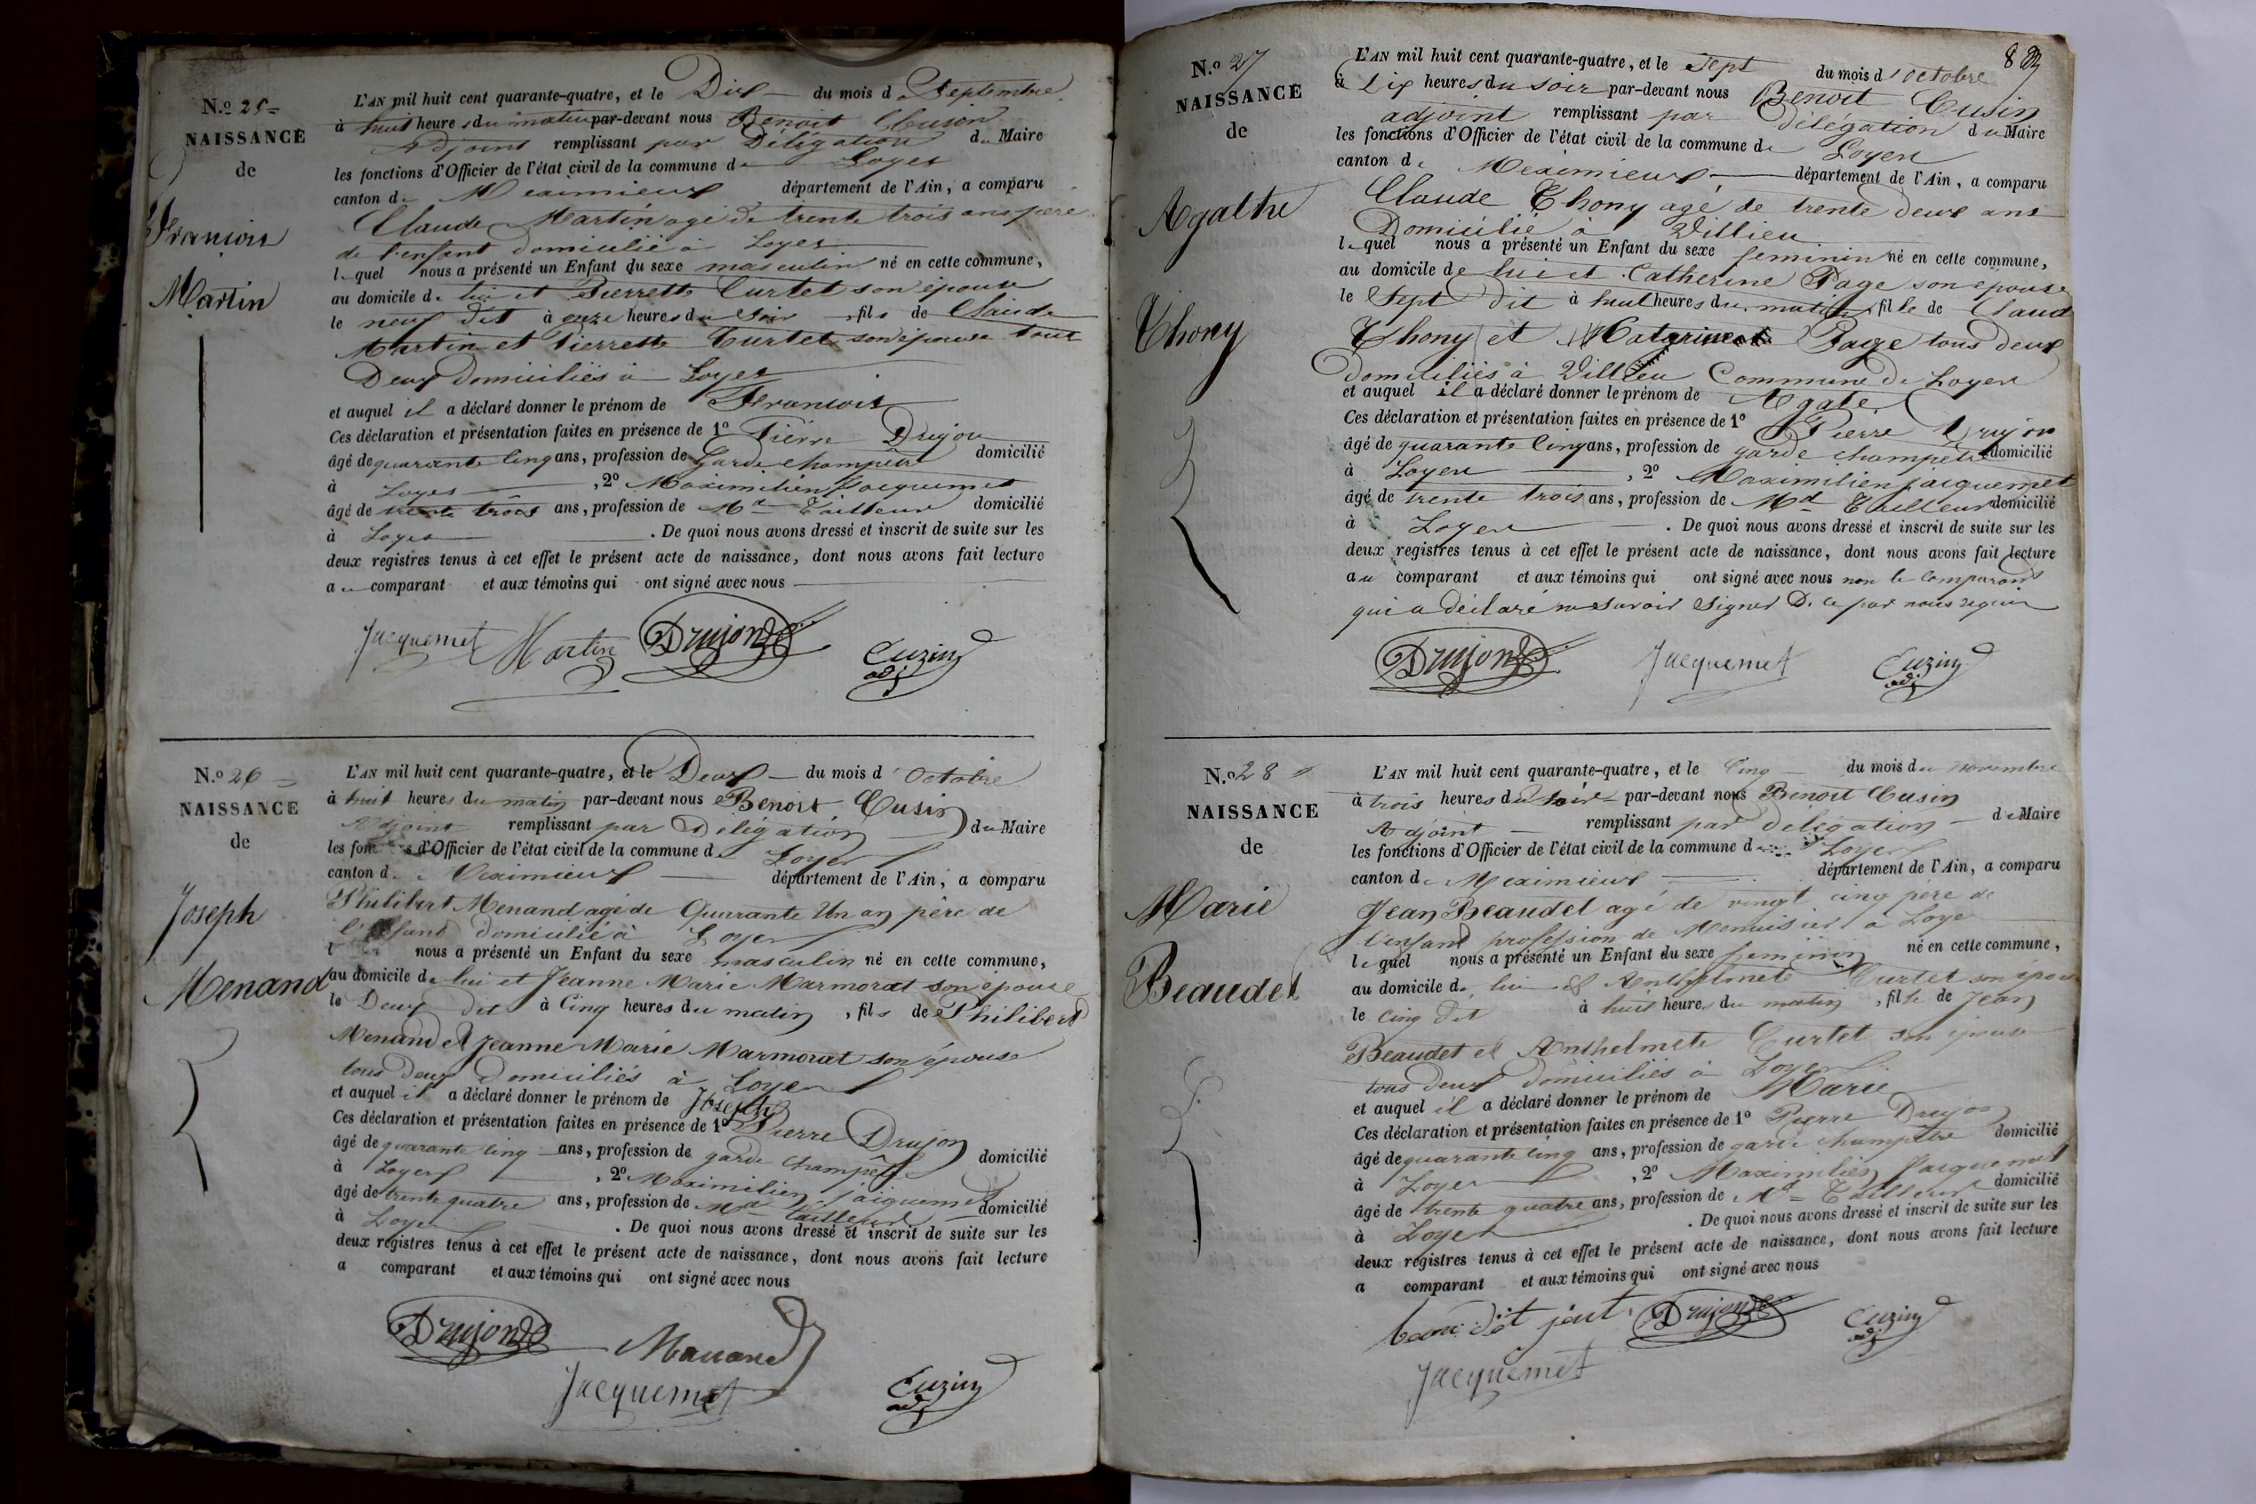 N.º 25
NAISSANCE
de
François
Martin
L'AN mil huit cent quarante-quatre, et le Dix du mois de Septembre
à huit heures du matin par-devant nous Benoit Cusin
Adjoint remplissant par Délégation du Maire
les fonctions d'Officier de l'état civil de la commune de Loyes
canton de Meximieux département de l'Ain, a comparu
Claude Martin agé de trente trois ans père
de l'enfant domicilié à Loyes
lequel nous a présenté un Enfant du sexe masculin né en cette commune,
au domicile de lui et Pierrette Curtet son épouse
le neuf dit à onze heures du soir, fils de Claude
Martin et Pierrette Curtet son épouse tout
Deux domiciliés à Loyes
et auquel il a déclaré donner le prénom de François
Ces déclaration et présentation faites en présence de 1º Pierre Drujon
âgé de quarante cinq ans, profession de Garde champêtre domicilié
à Loyes, 2º Maximilien Jacquemet
âgé de trente trois ans, profession de Md Tailleur domicilié
à Loyes. De quoi nous avons dressé et inscrit de suite sur les
deux registres tenus à cet effet le présent acte de naissance, dont nous avons fait lecture
au comparant et aux témoins qui ont signé avec nous
Jacquemet Martin Drujon Cuzin
adj
N.º 26
NAISSANCE
de
Joseph
Menand
L'AN mil huit cent quarante-quatre, et le Deux du mois d'Octobre
à huit heures du matin par-devant nous Benoit Cusin
Adjoint remplissant par Délégation du Maire
les fonctions d'Officier de l'état civil de la commune de Loyes
canton de Meximieux département de l'Ain, a comparu
Philibert Menand agé de Quarante Un an père de
l'enfant domicilié à Loyes
nous a présenté un Enfant du sexe masculin né en cette commune,
au domicile de lui et Jeanne Marie Marmorat son épouse
le Deux dit à Cinq heures du matin, fils de Philibert
Menand et Jeanne Marie Marmorat son épouse
tous deux Domiciliés à Loyes
et auquel il a déclaré donner le prénom de Joseph
Ces déclaration et présentation faites en présence de 1º Pierre Drujon
âgé de quarante cinq ans, profession de garde champêtre domicilié
à Loyes, 2º Maximilien jaiquemet
âgé de trente quatre ans, profession de Md Tailleur domicilié
à Loyes. De quoi nous avons dressé et inscrit de suite sur les
deux registres tenus à cet effet le présent acte de naissance, dont nous avons fait lecture
a comparant et aux témoins qui ont signé avec nous
Drujon Manand
Jacquemet Cuzin
adj
N.º 27
NAISSANCE
de
Agathe
Thony
L'AN mil huit cent quarante-quatre, et le Sept du mois d'octobre
à Six heures du soir par-devant nous Benoit Cusin
adjoint remplissant par délégation du Maire
les fonctions d'Officier de l'état civil de la commune de Loyes
canton de Meximieux département de l'Ain, a comparu
Claude Thony agé de trente deux ans
Domicilié à Villieu
lequel nous a présenté un Enfant du sexe feminin né en cette commune,
au domicile de lui et Catherine Page son épouse
le Sept dit à huit heures du matin, fille de Claud
Thony et Page tous deux
domiciliés à Villieu Commune de Loyes
et auquel il a déclaré donner le prénom de Agate
Ces déclaration et présentation faites en présence de 1º Pierre Drujon
âgé de quarante Cinq ans, profession de garde champêtre domicilié
à Loyes, 2º Maximilien jacquemet
âgé de trente trois ans, profession de Md Tailleur domicilié
à Loyes. De quoi nous avons dressé et inscrit de suite sur les
deux registres tenus à cet effet le présent acte de naissance, dont nous avons fait lecture
au comparant et aux témoins qui ont signé avec nous non le comparant
qui a déclaré ne savoir signer De ce par nous requis
Drujon Jacquemet Cuzin
adj
N.º 28
NAISSANCE
de
Marie
Beaudet
L'AN mil huit cent quarante-quatre, et le Cinq du mois de novembre
à trois heures du soir par-devant nous Benoit Cusin
Adjoint remplissant par délégation du Maire
les fonctions d'Officier de l'état civil de la commune de Loyes
canton de Meximieux département de l'Ain, a comparu
Jean Beaudet agé de vingt cinq père de
l'enfant profession de Menuisier à Loye
lequel nous a présenté un Enfant du sexe feminin né en cette commune,
au domicile de lui et Anthelmete Curtet son épouse
le Cinq dit à huit heures du matin, fille de Jean
Beaudet et Anthelmete Curtet son épouse
tous deux domiciliés à Loyes
et auquel il a déclaré donner le prénom de Marie
Ces déclaration et présentation faites en présence de 1º Pierre Drujon
âgé de quarante cinq ans, profession de garde champêtre domicilié
à Loyes, 2º Maximilien Jacquemet
âgé de trente quatre ans, profession de Md Tailleur domicilié
à Loyes. De quoi nous avons dressé et inscrit de suite sur les
deux registres tenus à cet effet le présent acte de naissance, dont nous avons fait lecture
a comparant et aux témoins qui ont signé avec nous
Drujon Cuzin
adj
Jacquemet